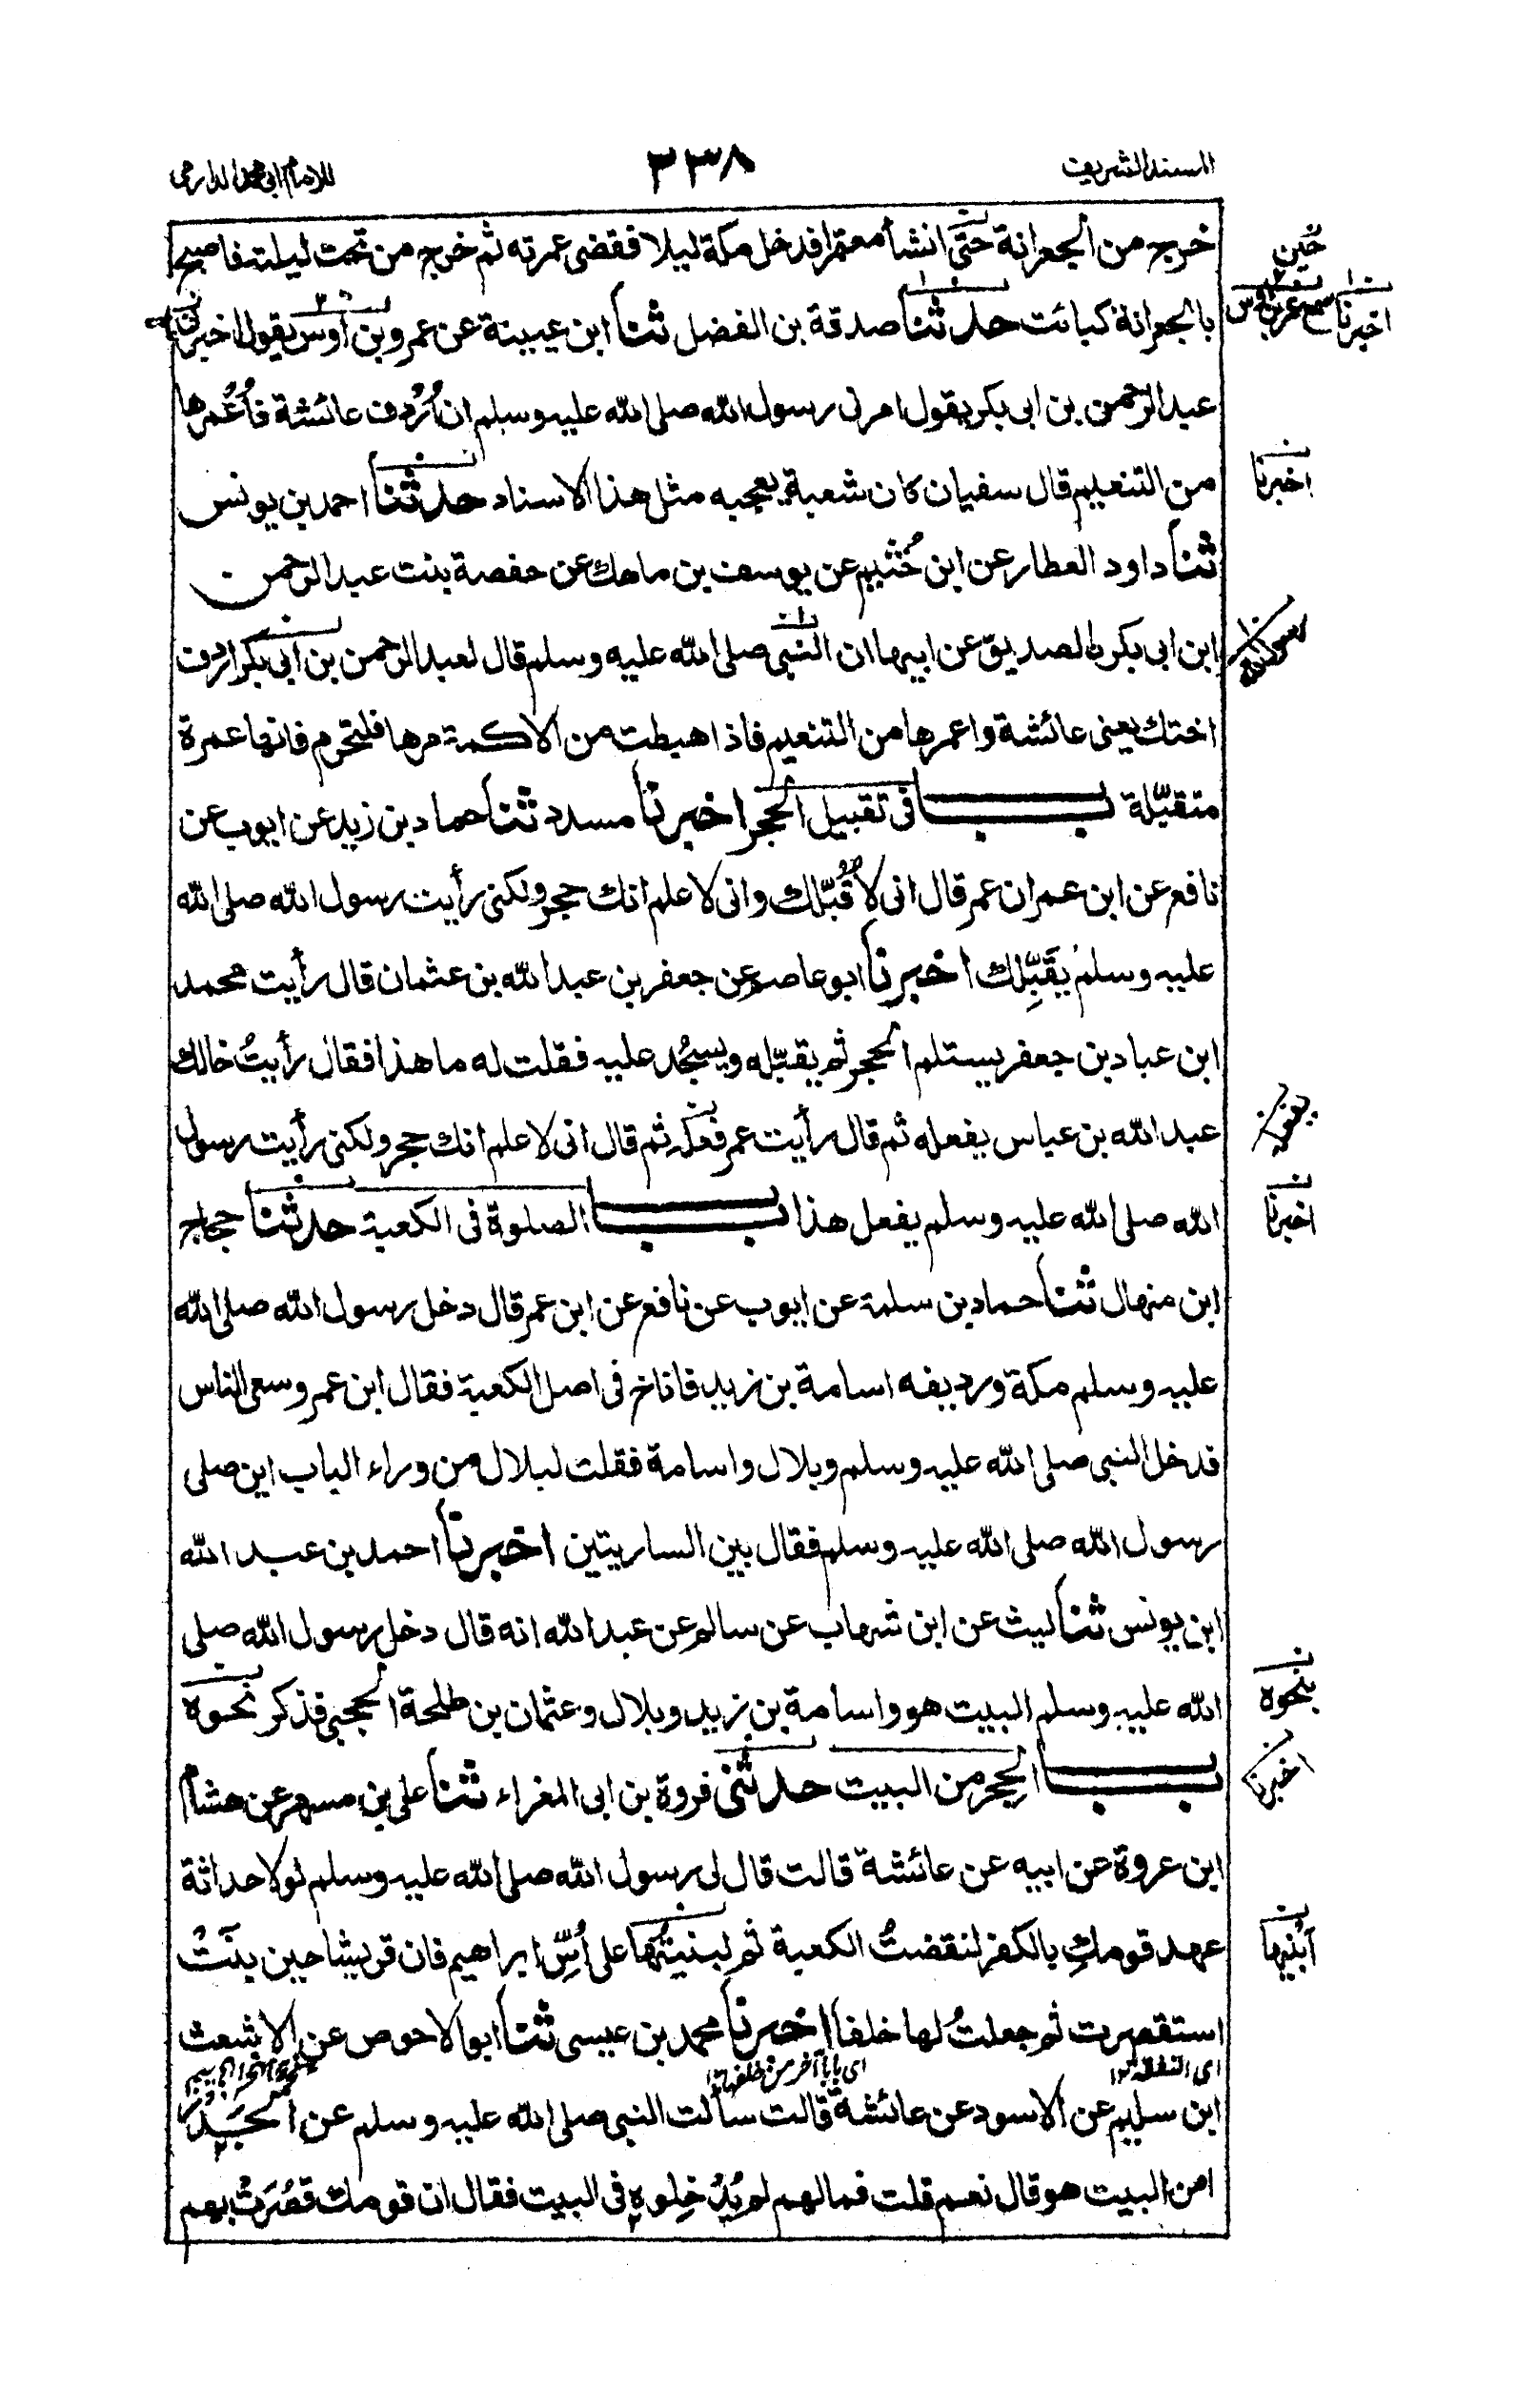 المسند الشريف
٣٣٨
للامام ابى محمد الدارمى
خرج من الجعرانة حتى انشأ معتمرا فدخل مكة ليلا فقضى عمرته ثم خرج من تحت ليلته فاصبح
بالجعرانة كبائت حدثنا صدقة بن الفضل ثنا ابن عيينة عن عمرو بن اوس يقول اخبرنى
عبد الرحمن بن ابى بكر يقول امرنى رسول الله صلى الله عليه وسلم ان اُرْدِف عائشة فاُعْمرها
من التنعيم قال سفيان كان شعبة يعجبه مثل هذا الاسناد حدثنا احمد بن يونس
ثنا داود العطار عن ابن خُثيم عن يوسف بن ماهك عن حفصة بنت عبد الرحمن
ابن ابى بكر الصديق عن ابيها ان النبى صلى الله عليه وسلم قال لعبد الرحمن بن ابى بكر اردف
اختك يعنى عائشة واعمرها من التنعيم فاذا هبطت من الاكمة مرها فلتحرم فانها عمرة
متقبّلة بـــاب فى تقبيل الحجر اخبرنا مسدد ثنا حماد بن زيد عن ايوب عن
نافع عن ابن عمر ان عمر قال انى لاُقبّلك وانى لاعلم انك حجر ولكنى رأيت رسول الله صلى الله
عليه وسلم يُقَبِّلك اخبرنا ابو عاصم عن جعفر بن عبد الله بن عثمان قال رأيت محمد
ابن عباد بن جعفر يستلم الحجر ثم يقبّله ويسجُد عليه فقلت له ما هذا فقال رأيتُ خالك
عبد الله بن عباس يفعله ثم قال رأيت عمر فعله ثم قال انى لاعلم انك حجر ولكنى رأيت رسول
الله صلى الله عليه وسلم يفعل هذا بـــاب الصلوة فى الكعبة حدثنا حجاج
ابن منهال ثنا حماد بن سلمة عن ايوب عن نافع عن ابن عمر قال دخل رسول الله صلى الله
عليه وسلم مكة ورديفه اسامة بن زيد فاناخ فى اصل الكعبة فقال ابن عمر وسعى الناس
فدخل النبى صلى الله عليه وسلم وبلال واسامة فقلت لبلال من وراء الباب اين صلى
رسول الله صلى الله عليه وسلم فقال بين الساريتين اخبرنا احمد بن عبد الله
ابن يونس ثنا ليث عن ابن شهاب عن سالم عن عبد الله انه قال دخل رسول الله صلى
الله عليه وسلم البيت هو واسامة بن زيد وبلال وعثمان بن طلحة الحجبى فذكر نحوه
بـــاب الحِجر من البيت حدثنى فروة بن ابى المغراء ثنا على بن مسهر عن هشام
ابن عروة عن ابيه عن عائشة قالت قال لى رسول الله صلى الله عليه وسلم لولا حداثة
عهد قومكِ بالكفر لنقضتُ الكعبة ثم لبنيتُها على اُسِّ ابراهيم فان قريشا حين بنَتْ
استقصرت ثم جعلتُ لها خلفا اخبرنا محمد بن عيسى ثنا ابو الاحوص عن الاشعث
ابن سليم عن الاسود عن عائشة قالت سألت النبى صلى الله عليه وسلم عن الجَدْر
امن البيت هو قال نعم قلت فما لهم لم يُدْخِلوه فى البيت فقال ان قومك قصُرَتْ بهم
حين
اخبرنا
اخبرنا
اخبرنا
بنحوه
اخبرنا
اَبْنيها
اى بابا آخر من خلفها